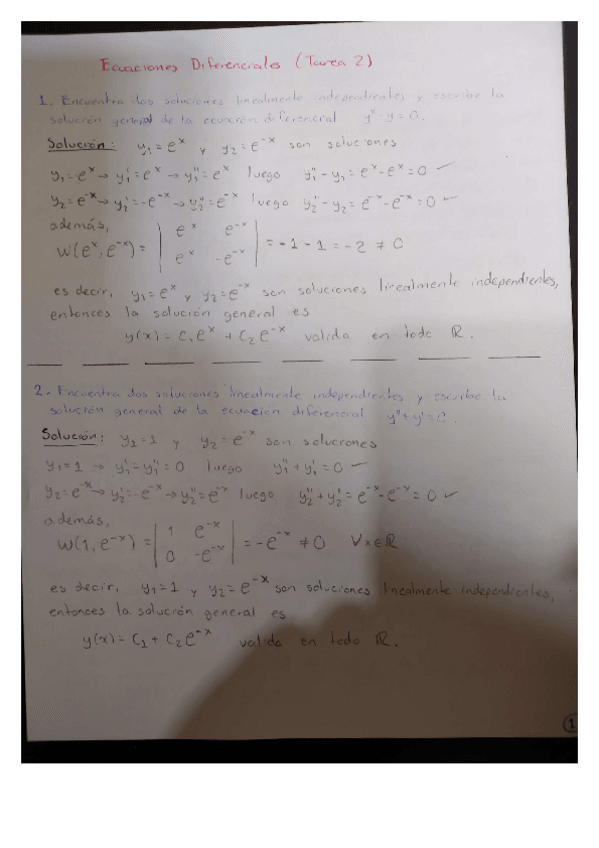 Ecuaciones Diferenciales (Tarea 2)
1. Encuentra dos soluciones linealmente independientes y escribe la
solución general de la ecuación diferencial y''-y=0.
Solución: y₁=eˣ y y₂=e⁻ˣ son soluciones
y₁=eˣ→y₁'=eˣ→y₁''=eˣ luego y₁''-y₁=eˣ-eˣ=0 ✓
y₂=e⁻ˣ→y₂'=-e⁻ˣ→y₂''=e⁻ˣ luego y₂''-y₂=e⁻ˣ-e⁻ˣ=0 ✓
además,
W(eˣ,e⁻ˣ)=|eˣ e⁻ˣ|
|eˣ -e⁻ˣ| =-1-1=-2≠0
es decir, y₁=eˣ y y₂=e⁻ˣ son soluciones linealmente independientes,
entonces la solución general es
y(x)=C₁eˣ+C₂e⁻ˣ valida en todo ℝ.
2. Encuentra dos soluciones linealmente independientes y escribe la
solución general de la ecuación diferencial y''+y'=0.
Solución: y₁=1 y y₂=e⁻ˣ son soluciones
y₁=1→y₁'=y₁''=0 luego y₁''+y₁'=0 ✓
y₂=e⁻ˣ→y₂'=-e⁻ˣ→y₂''=e⁻ˣ luego y₂''+y₂'=e⁻ˣ-e⁻ˣ=0 ✓
además,
W(1,e⁻ˣ)=|1 e⁻ˣ|
|0 -e⁻ˣ| =-e⁻ˣ≠0 ∀x∈ℝ
es decir, y₁=1 y y₂=e⁻ˣ son soluciones linealmente independientes,
entonces la solución general es
y(x)=C₁+C₂e⁻ˣ valida en todo ℝ.
1